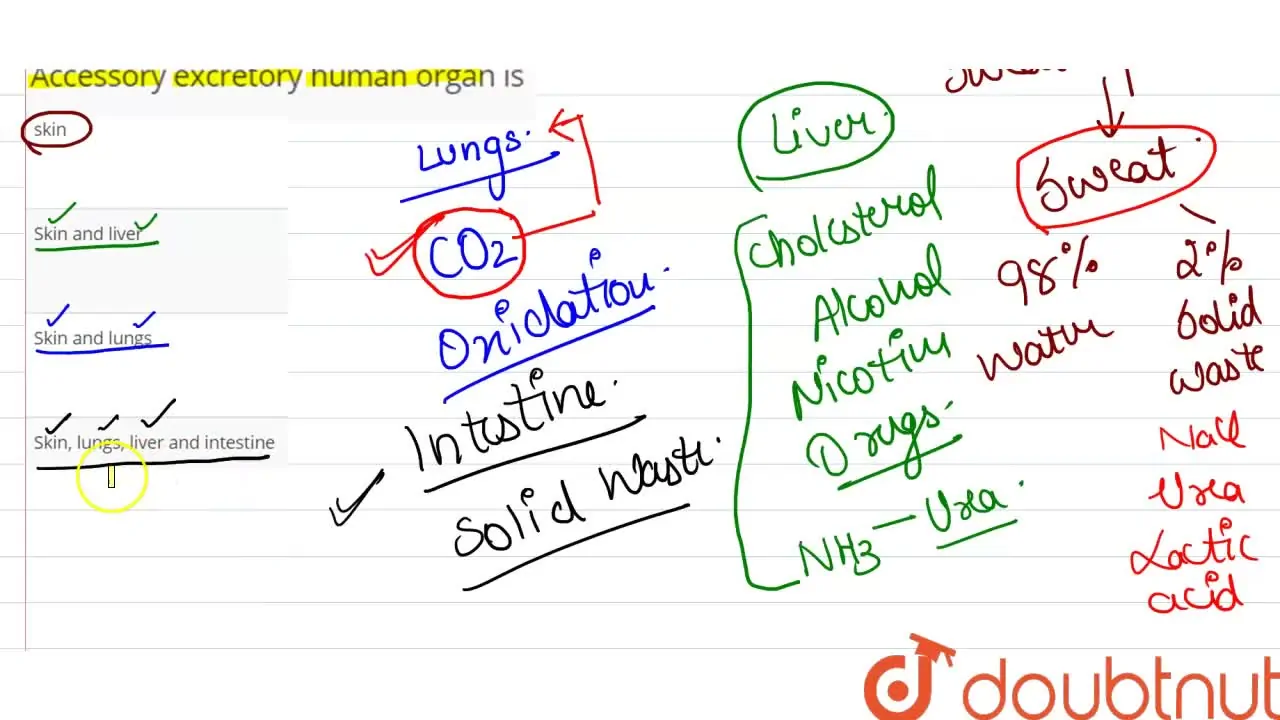 Accessory excretory human organ is
skin
Skin and liver
Skin and lungs
Skin, lungs, liver and intestine
Lungs.
CO2
Oxidation.
Intestine.
Solid Waste.
Liver.
Cholesterol
Alcohol
Nicotine
Drugs.
NH3 — Urea.
Sweat
Sweat.
98%
Water
2%
Solid
Waste
NaCl
Urea
Lactic
acid
doubtnut